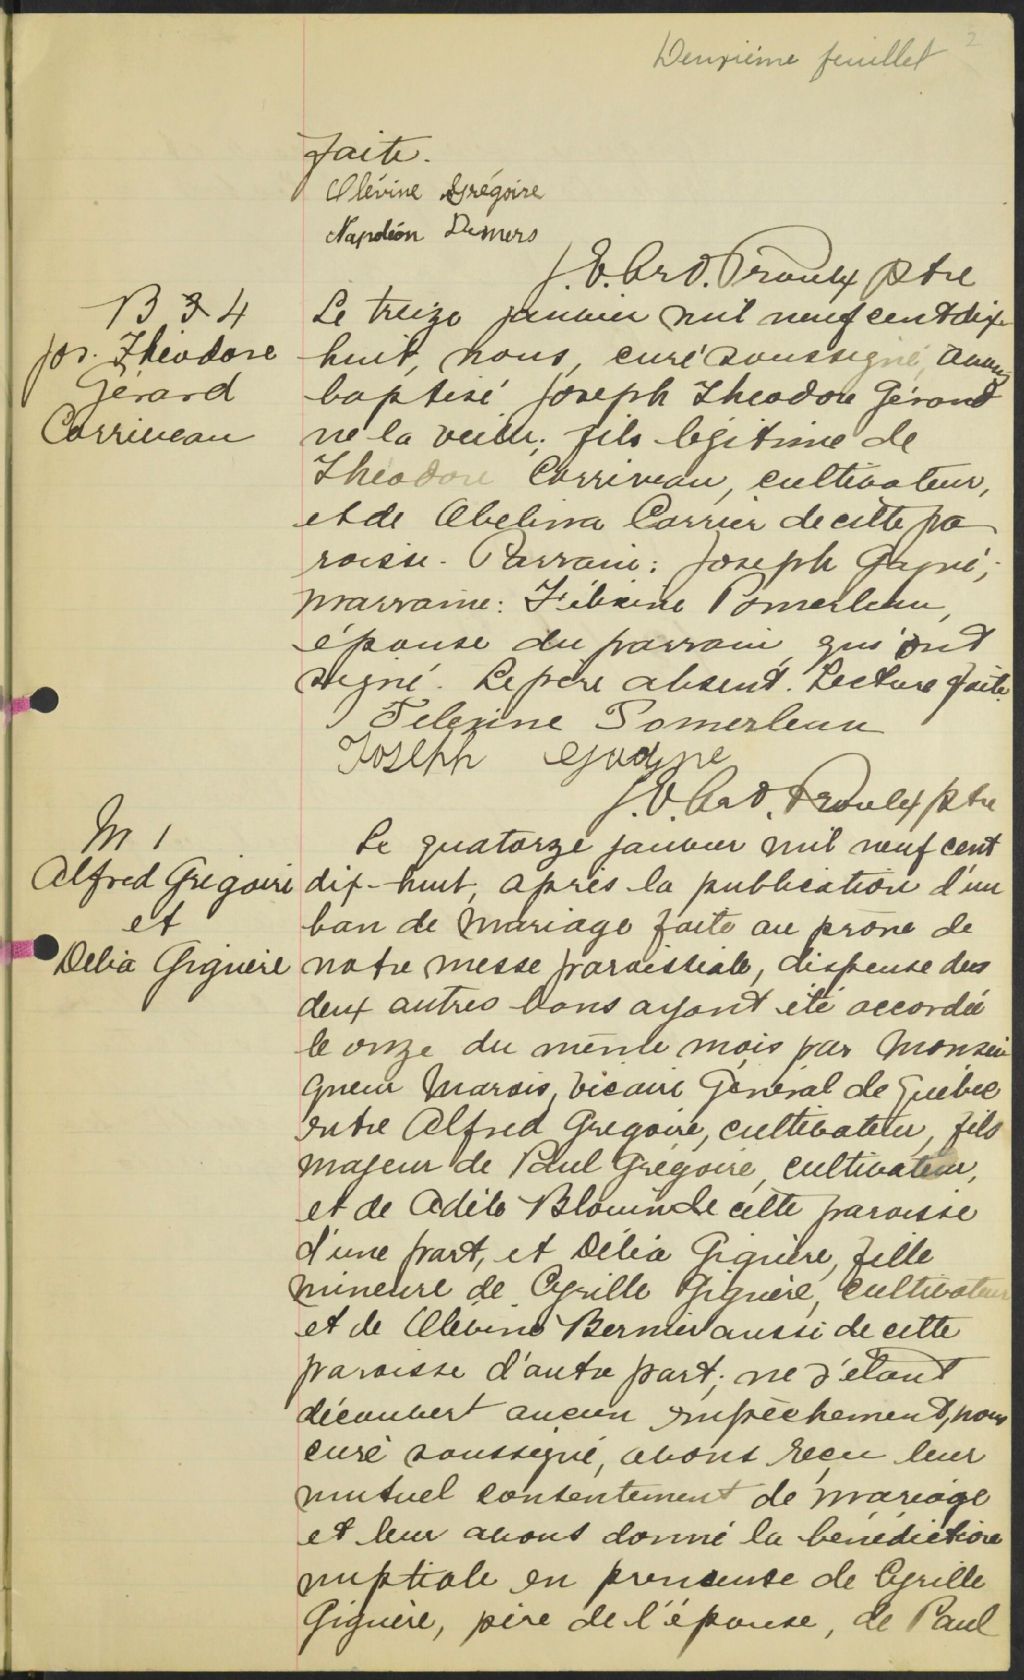 Deuxième feuillet 2
faite.
Olévine Grégoire
Napoléon Demers
J. E. Ard. Proulx ptre
B 4
Jos. Théodore
Gérard
Corriveau
Le treize janvier mil neuf cent dix-
huit, nous, curé soussigné, avons
baptisé Joseph Théodore Gérard
né la veille, fils légitime de
Théodore Corriveau, cultivateur,
et de Obelina Carrier de cette pa
roisse. Parrain: Joseph Gagné;
marraine: Félixine Pomerleau,
épouse du parrain, qui ont
signé. Le père absent. Lecture faite.
Felexine Pomerleau
Joseph Gagne
J. E. Ard. Proulx ptre
M 1
Alfred Grégoire
et
Delia Giguère
Le quatorze janvier mil neuf cent
dix-huit, après la publication d'un
ban de mariage faite au prône de
notre messe paroissiale, dispense des
deux autres bans ayant été accordée
le onze du même mois par Monsei
gneur Marois, Vicaire Général de Québec
entre Alfred Grégoire, cultivateur, fils
majeur de Paul Grégoire, cultivateur,
et de Adèle Blouin de cette paroisse
d'une part, et Délia Giguère, fille
mineure de Cyrille Giguère, cultivateur
et de Olévine Bernier aussi de cette
paroisse d'autre part; ne s'étant
découvert aucun empêchement, nous
curé soussigné, avons reçu leur
mutuel consentement de mariage
et leur avons donné la bénédiction
nuptiale en présence de Cyrille
Giguère, père de l'épouse, de Paul